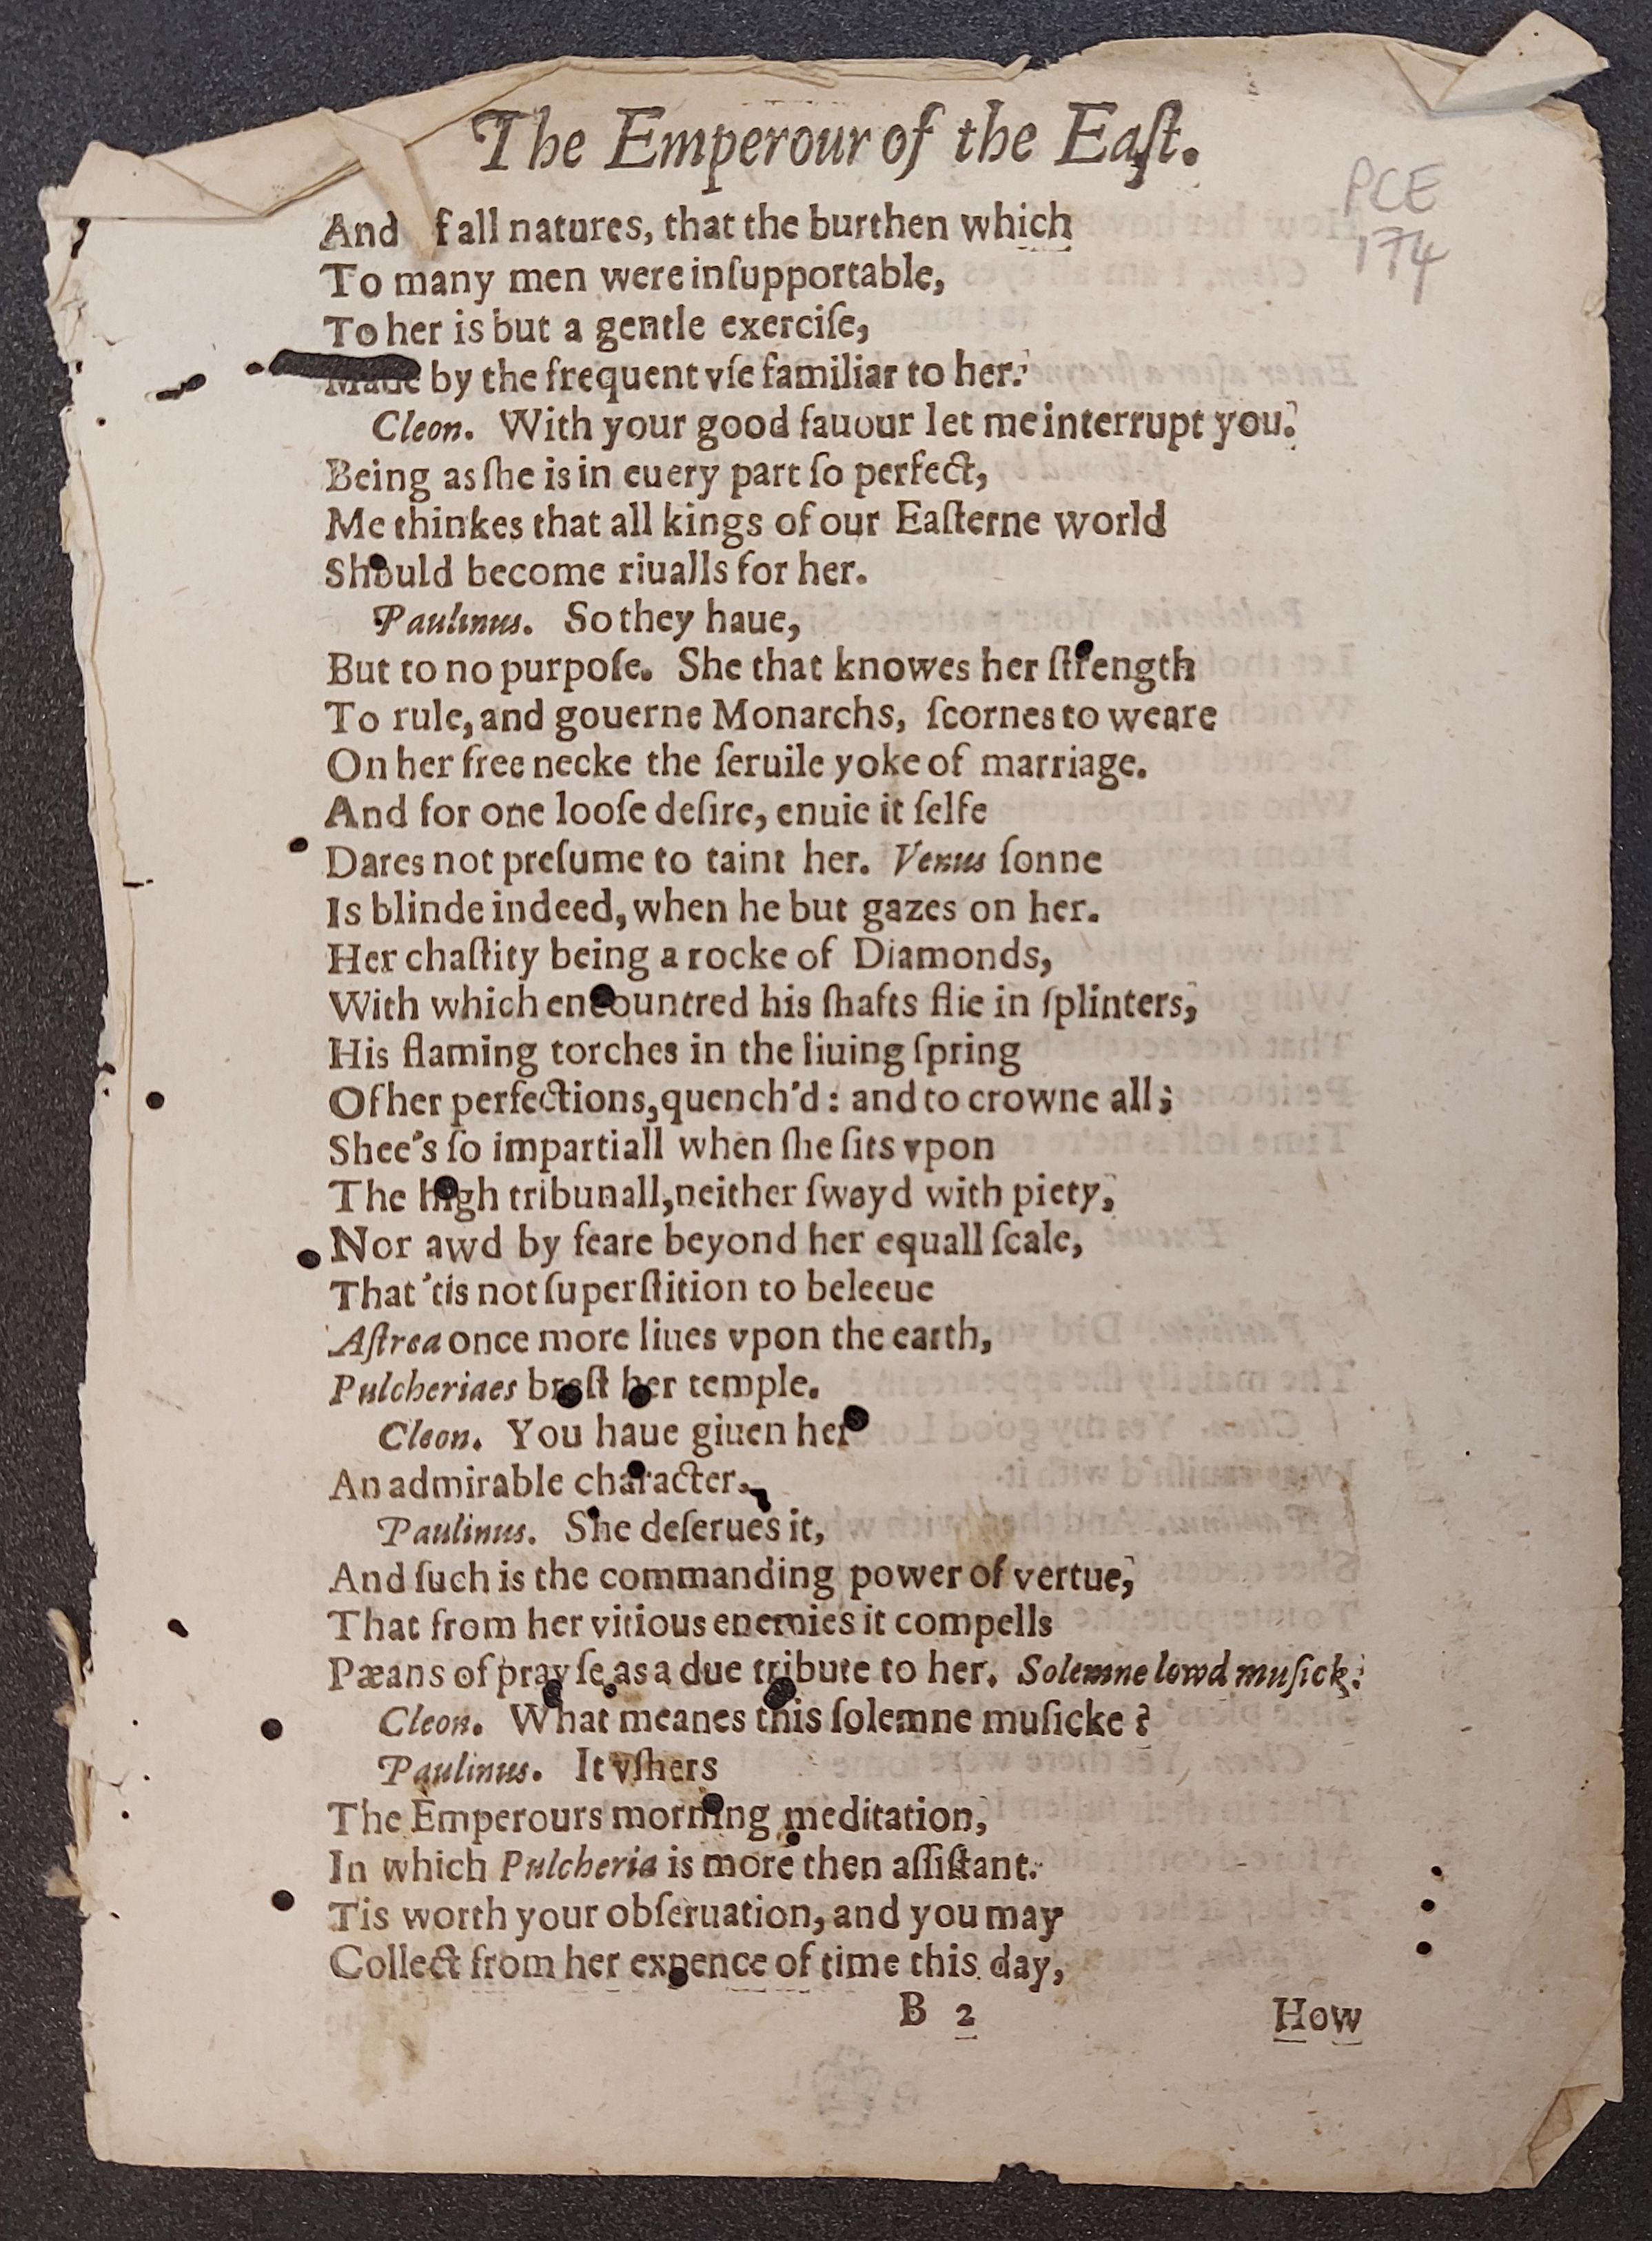 The Emperour of the Eaſt.
PCE
174
And f all natures, that the burthen which
To many men were inſupportable,
To her is but a gentle exerciſe,
Made by the frequent vſe familiar to her.
Cleon. With your good fauour let me interrupt you.
Being as ſhe is in euery part ſo perfect,
Me thinkes that all kings of our Eaſterne world
Should become riualls for her.
Paulinus. So they haue,
But to no purpoſe. She that knowes her ſtrength
To rule, and gouerne Monarchs, ſcornes to weare
On her free necke the ſeruile yoke of marriage.
And for one looſe deſire, enuie it ſelfe
Dares not preſume to taint her. Venus ſonne
Is blinde indeed, when he but gazes on her.
Her chaſtity being a rocke of Diamonds,
With which encountred his ſhafts flie in ſplinters,
His flaming torches in the liuing ſpring
Of her perfections, quench'd: and to crowne all;
Shee's ſo impartiall when ſhe ſits vpon
The high tribunall, neither ſwayd with piety,
Nor awd by feare beyond her equall ſcale,
That 'tis not ſuperſtition to beleeue
Aſtrea once more liues vpon the earth,
Pulcheriaes breſt her temple.
Cleon. You haue giuen her
An admirable character.
Paulinus. She deſerues it,
And ſuch is the commanding power of vertue,
That from her vitious enemies it compells
Pæans of prayſe as a due tribute to her. Solemne lowd muſick.
Cleon. What meanes this ſolemne muſicke?
Paulinus. It vſhers
The Emperours morning meditation,
In which Pulcheria is more then aſſiſtant.
Tis worth your obſeruation, and you may
Collect from her expence of time this day,
B 2 How